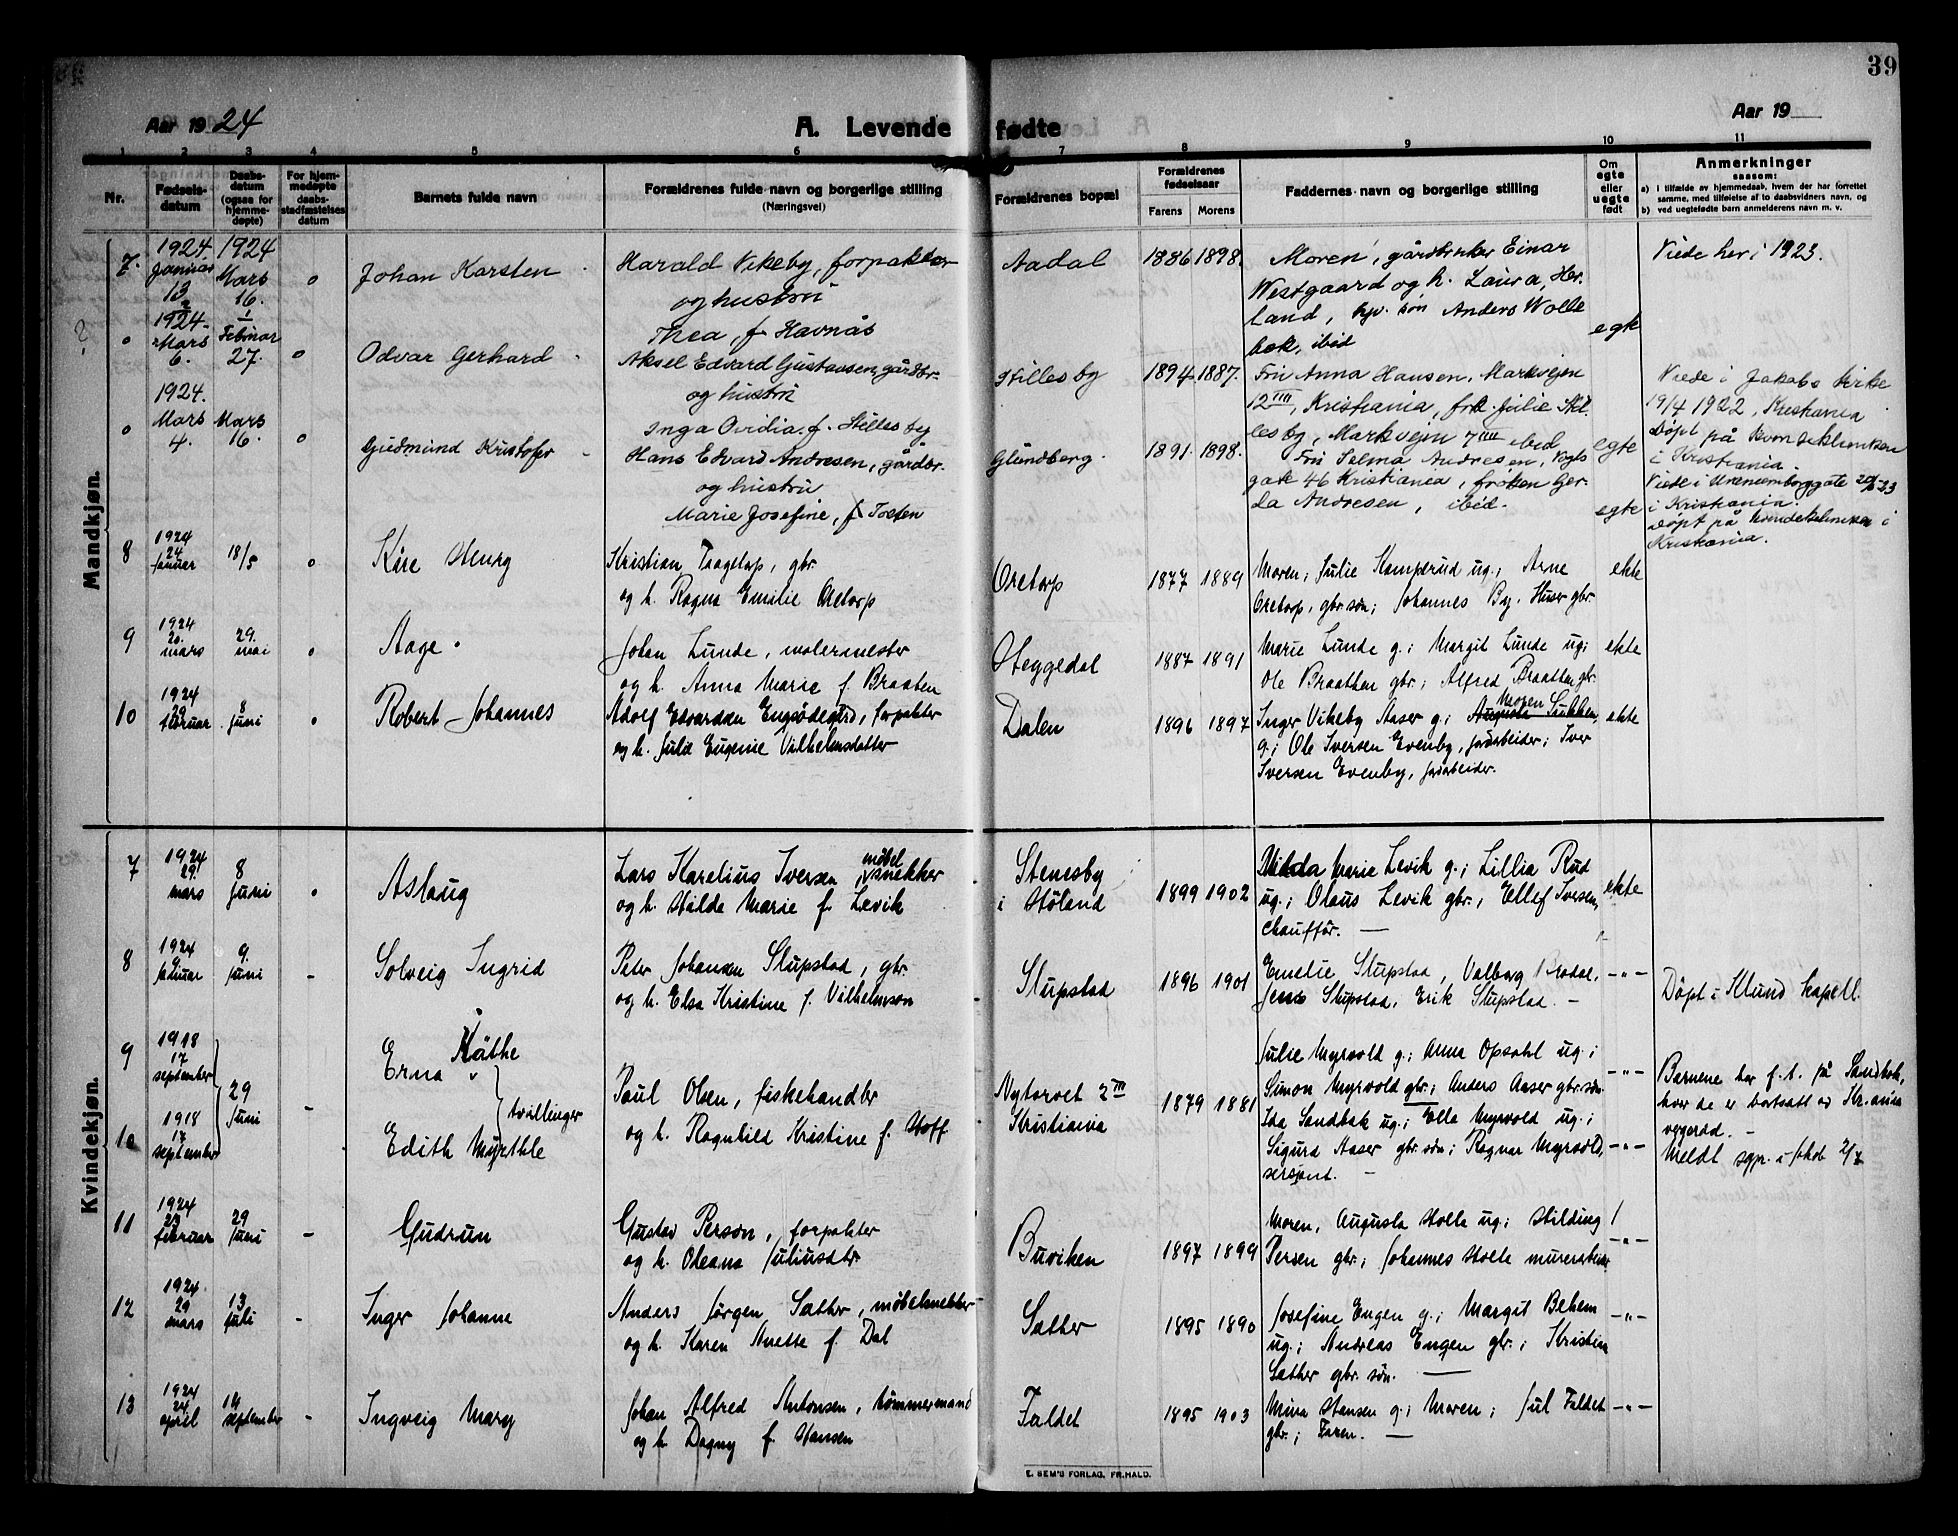 39
Aar 1924
A. Levende fødte
Aar 19
1 2 3 4 5 6 7 8 9 10 11
Nr.
Fødsels-
datum
Daabs-
datum
(ogsaa for
hjemme-
døpte)
For hjem-
medøpte
daabs-
stadfæstelses
datum
Barnets fulde navn
Forældrenes fulde navn og borgerlige stilling
(Næringsvei)
Forældrenes bopæl
Forældrenes
fødselsaar
Farens Morens
Faddernes navn og borgerlige stilling
Om
egte
eller
uegte
født
Anmerkninger
saasom:
a) i tilfælde av hjemmedaab, hvem der har forrettet
samme, med tilføielse af to daabsvidners navn, og
b) ved uegtefødte barn anmelderens navn m. v.
Mandkjøn.
7. 1924. Januar 13 1924 Mars 16. o Johan Karsten
Harald Vikeby, forpakter
og hustru
Thea, f. Havnås
Aadal 1886 1898.
Moren, gårdbruker Einar
Westgaard og h. Laura, Her-
land, hjv. søn Anders Wolle
bæk, ibid
egte
Viede her i 1923.
o 1924. Mars 6. Februar 27. o Odvar Gerhard
Aksel Edvard Gustavsen, gårdbr.
og hustru
Inga Ovidia f. Hillesby
Hillesby 1894. 1887.
Fru Anna Hansen, Markvejen
12 IIII, Kristiania, frk. Julie Hil-
lesby, Markvejen 7 IIII ibid
egte
Viede i Jakobs kirke
19/4 1922, Kristiania
Døpt på Kvindeklinikken
i Kristiania.
o 1924. Mars 4. Mars 16. o Gudmund Kristofer
Hans Edvard Andresen, gårdbr.
og hustru
Marie Josefine, f. Tosten
Glundberg. 1891. 1898.
Fru Selma Andresen, Vogts
gate 46 Kristiania, frøken Ger-
da Andresen, ibid.
egte
i Kristiania.
Døpt på Kvindeklinikken i
Kristiania.
8 1924 24 januar 18/5 o Kåre Henry
Kristian Traaetorp, gbr.
og h. Ragna Emilie Oretorp
Oretorp 1877 1889
Moren; Julie Kamperud ug.; Arne
Oretorp, gbr.søn; Johannes By. Huser gbr.
ekte
9 1924 20. mars 29. mai o Aage
Johan Lunde, malermester
og h. Anna Marie f. Braaten
Heggedal 1887 1891
Marie Lunde g.; Margit Lunde ug;
Ole Braathen gbr.; Alfred Braathen gbr.
ekte
10 1924 29 februar 8 juni o Robert Johannes
Adolf Edvardsen Engsødegård, forpakter
og h. Julie Eugenie Vilhelmsdatter
Dalen 1896 1897
Moren
Inger Vikeby Aaser g; Augusta Sukken,
g.; Ole Iversen Evenby, jordarbeider; Iver
Iversen Evenby, jordarbeider.
ekte
Kvindekjøn.
7 1924 29. mars 8 juni o Aslaug
Lars Karelius Iversen møbelsnekker
og h. Hilda Marie f. Levik
Stenesby
i Høland 1899 1902
Milda Marie Levik g.; Lillia Rud
ug.; Olaus Levik gbr.; Ellef Iversen,
chauffør. —
ekte
8 1924 9. januar 9. juni - Solveig Ingrid
Peter Johansen Slupstad, gbr.
og h. Elsa Kristine f. Vilhelmson
Slupstad 1896 1901
Emelie Slupstad, Valborg Prodal,
Jens Slupstad; Erik Slupstad. —
—"—
Døpt i Klund kapell.
9 1918 17 september 29 juni - Erna Käthe
10 1918 17 september Edith Myrthle
tvillinger
Paul Olsen, fiskehandler
og h. Ragnhild Kristine f. Hoff
Nytorvet 2 III
Kristiania 1879 1881
Julie Myrvold g.; Anna Opsahl ug.;
Simon Myrvold gbr.; Anders Aaser gbr.søn.
Ida Sandbak ug.; Ella Myrvold ug.;
Sigurd Aaser gbr.søn; Ragnar Myrvold,
sersjant. —
—"—
—"—
Barnene bor f.t. på Sandbak,
hvor de er bortsatt av Kr.ania
vergeråd. —
Meldt sgpr. i Jakob 2/7
11 1924 23 februar 29 juni - Gudrun
Gustav Person, forpakter
og h. Oleana Juliusdtr.
Buviken 1897 1899
Moren, Augusta Holle ug.; Hilding
Persen gbr.; Johannes Holle murerarbeider
—"—
12 1924 29 mars 13 juli - Inger Johanne
Anders Jørgen Sæther, møbelsnekker
og h. Karen Anette f. Dal
Sæther 1895 1890
Josefine Engen g.; Margit Behem
ug.; Andreas Engen gbr.; Kristian
Sæther gbr.søn. —
—"—
13 1924 24 april 14 september - Ingveig Mary
Johan Alfred Antonsen, tømmermand
og h. Dagny f. Hansen
Faldet 1895 1903
Mina Hansen g.; Moren; Jul Faldet
gbr.; Faren. —
—"—
E. SEM'S FORLAG, FR.HALD.